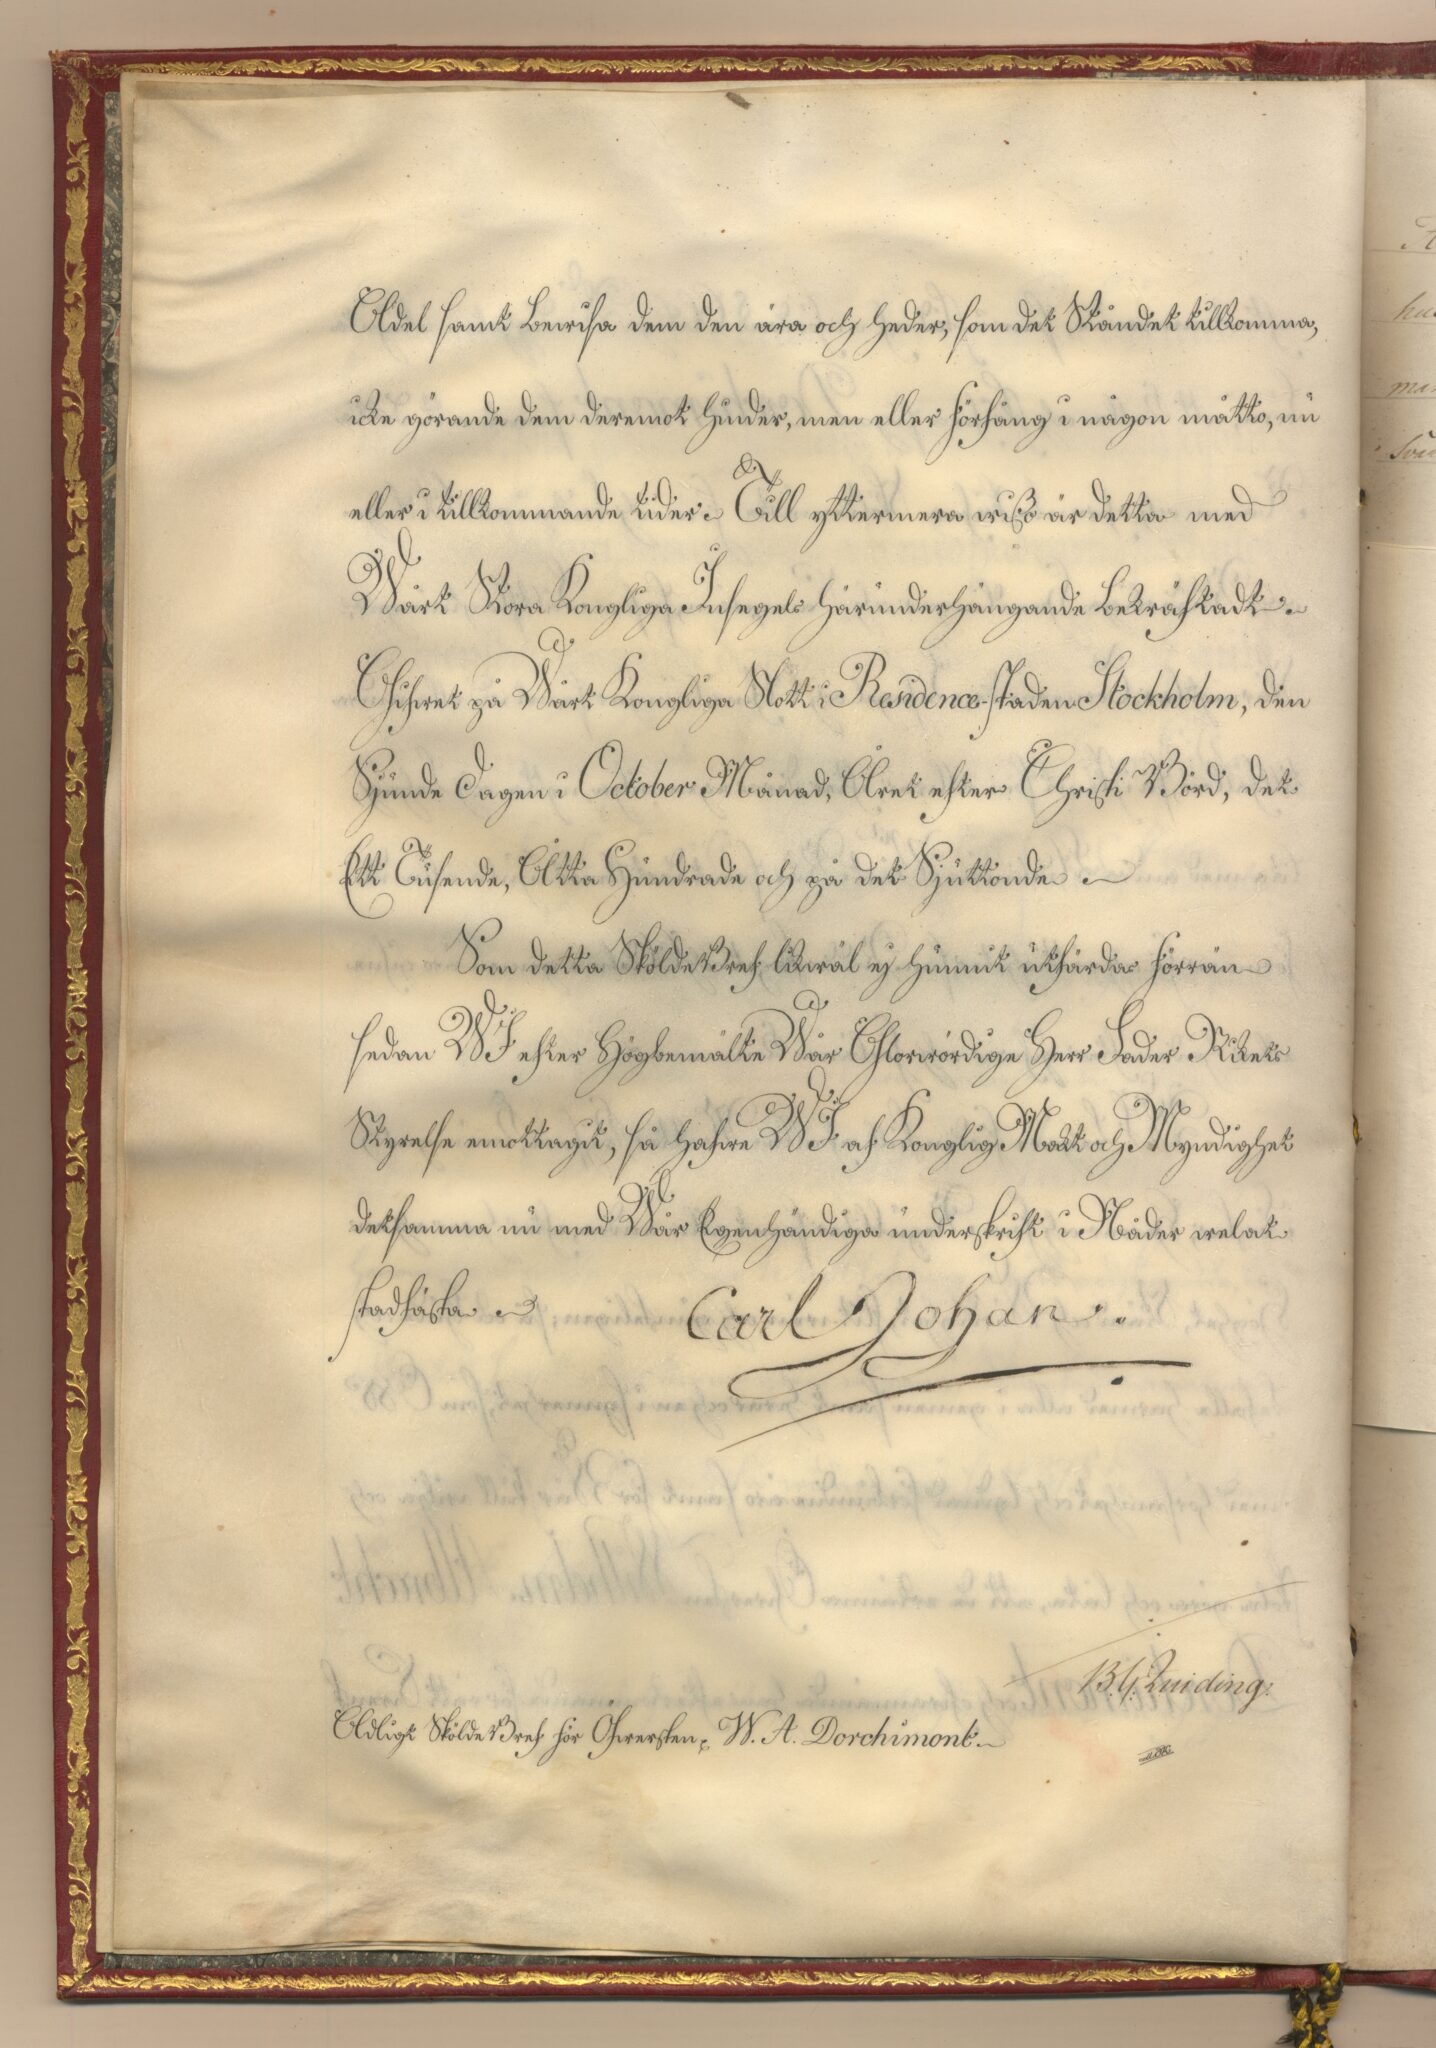 Adel samt bewisa dem den ära och heder, som det Ståndet tillkomma,
icke görande dem deremot hinder, men eller förfång i någon måtto, nu
eller i tillkommande tider. Till yttermera wisso är detta med
Wårt Stora Kongliga Insegels härunderhängande bekräftadt.
Gifwet på Wårt Kongliga Slott i Residence-staden Stockholm, den
Sjunde dagen i October Månad, Året efter Christi Börd, det
Ett Tusende, Åtta Hundrade och på det Sjuttonde
Som detta Sköldebref likwäl ej hunnit utfärdas förrän
sedan WJ efter Högbemälte Wår Glorwördige Herr Fader Rikets
Styrelse emottagit, så hafwe WJ af Konglig Makt och Myndighet
detsamma nu med Wår Egenhändiga underskrift i Nåder welat
stadfästa
Carl Johan
B. G. Quiding.
Adligt Sköldebref för Öfwersten, W. A. Dorchimont.